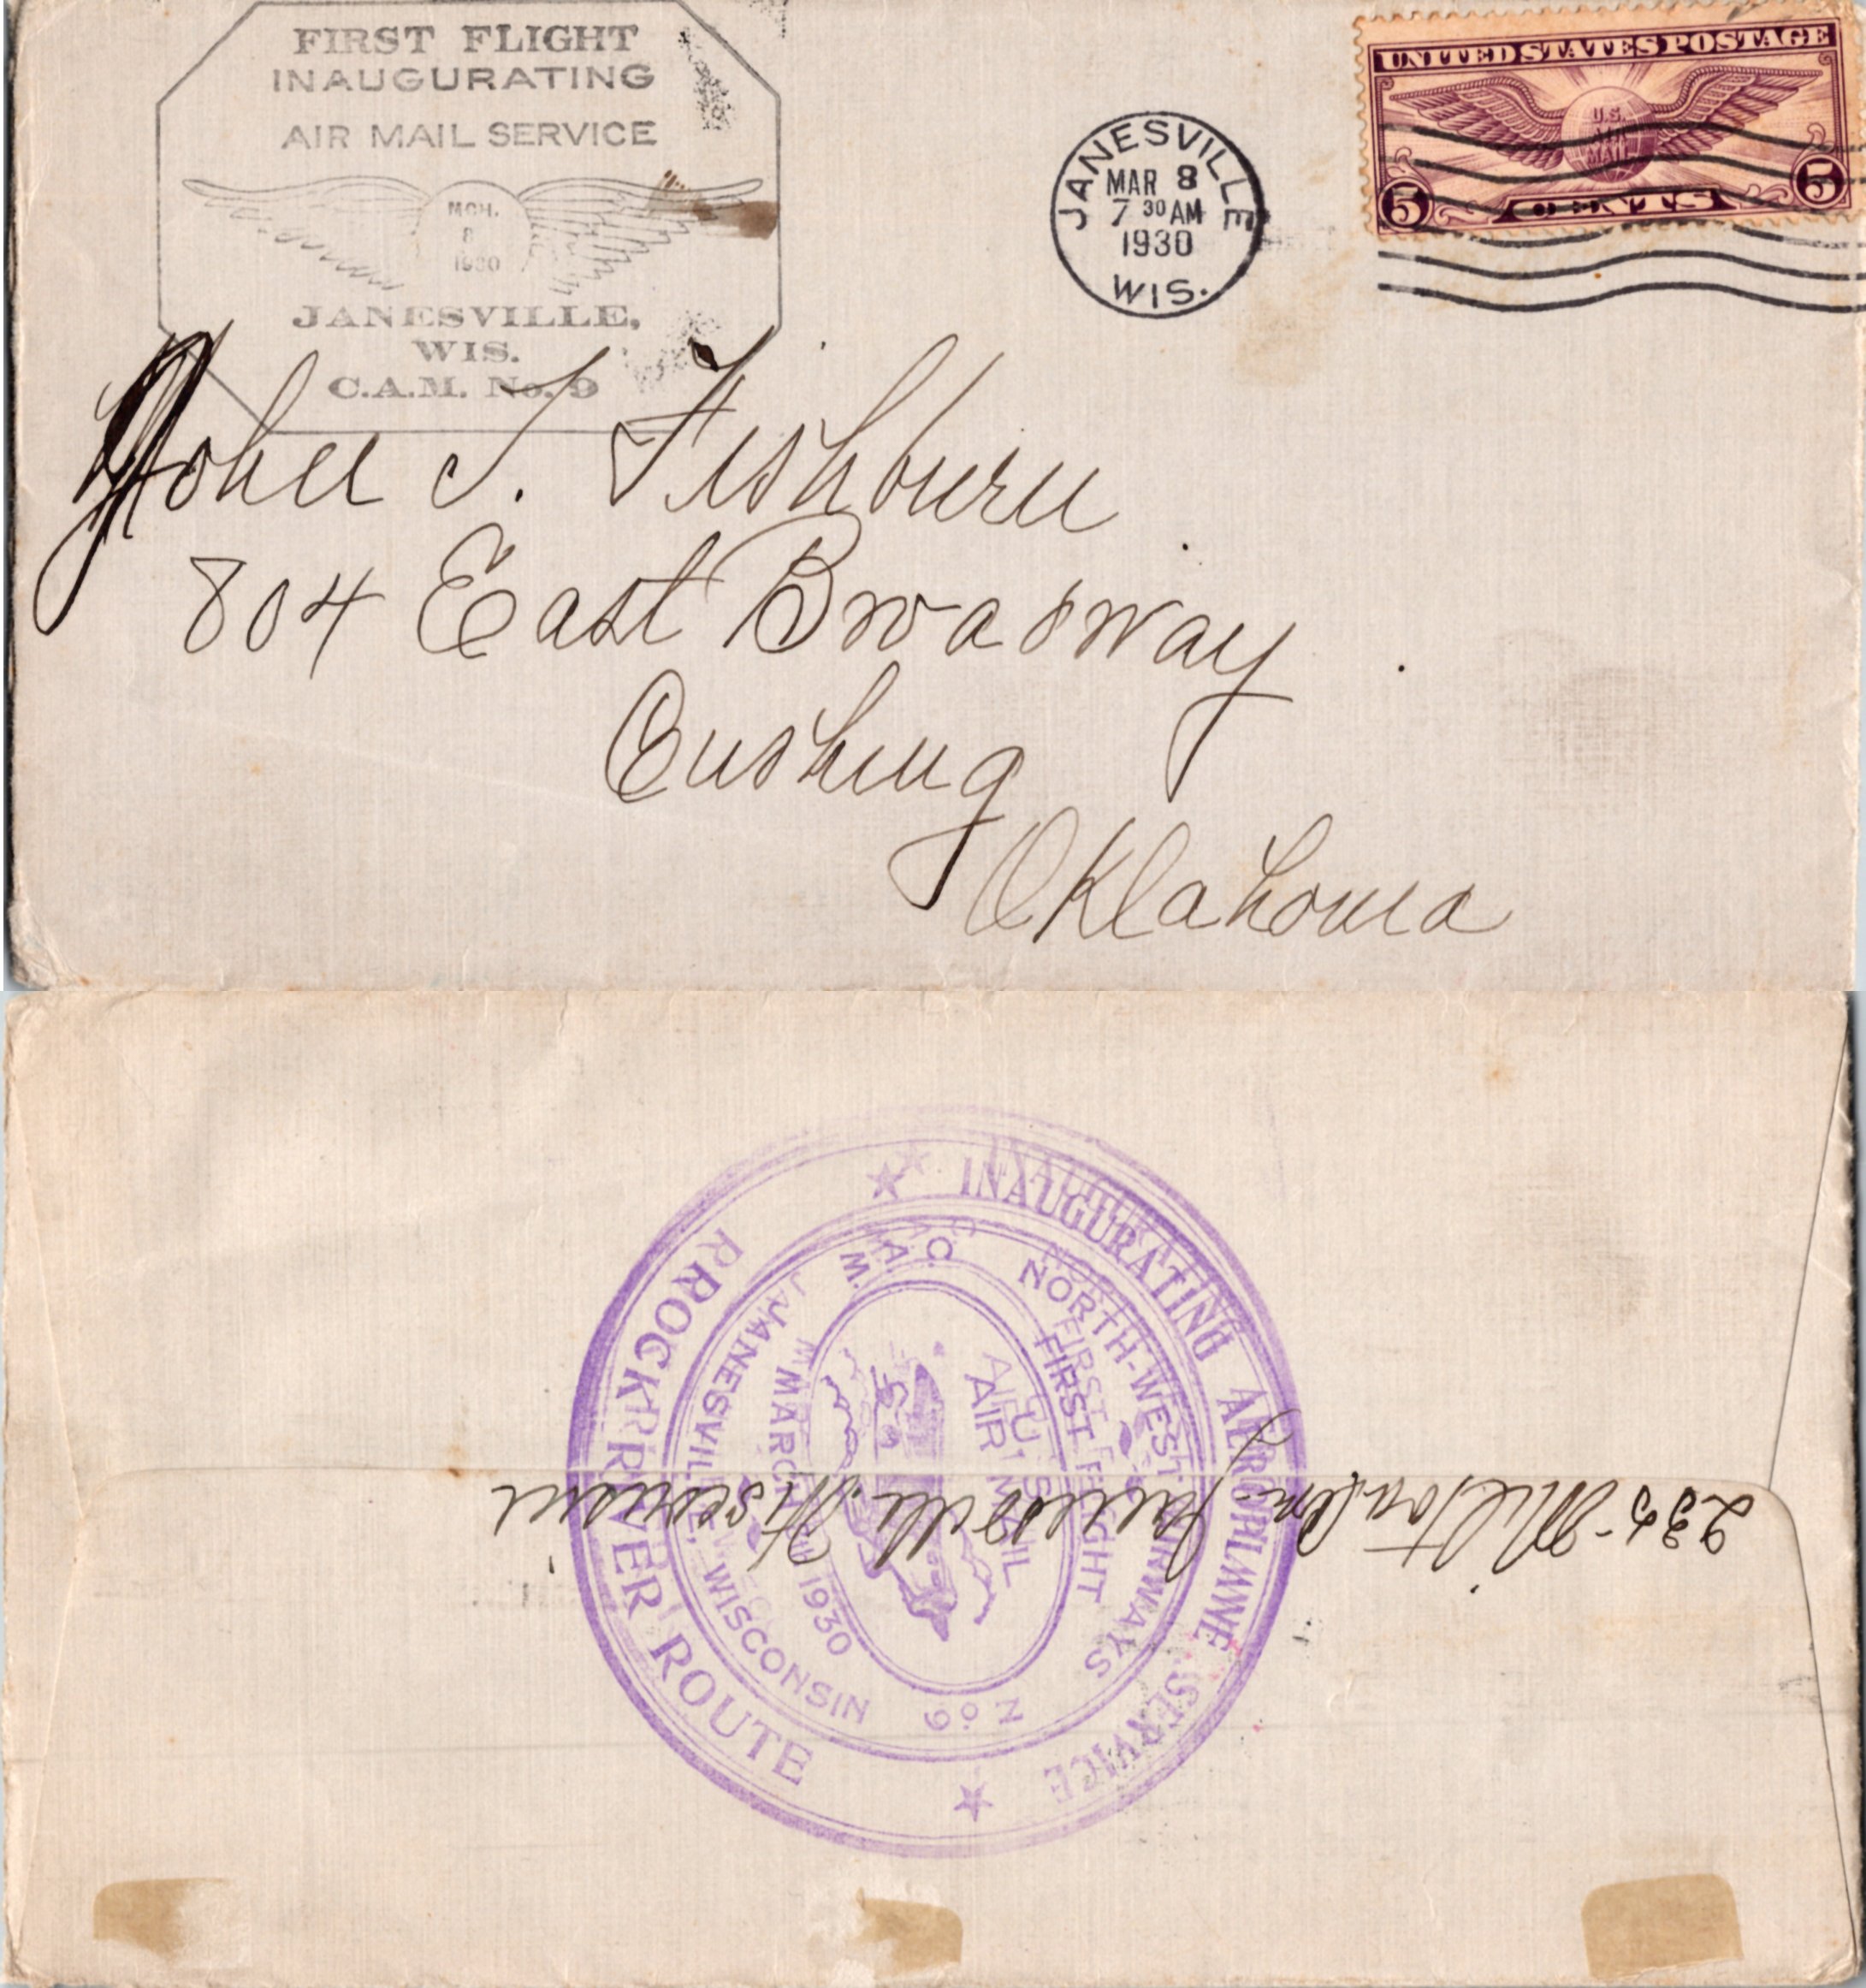 FIRST FLIGHT
INAUGURATING
AIR MAIL SERVICE
MCH.
8
1930
JANESVILLE,
WIS.
C.A.M. No. 9
JANESVILLE
MAR 8
7 30 AM
1930
WIS.
UNITED STATES POSTAGE
U.S.
AIR
MAIL
5 CENTS 5
John T. Fishburn
804 East Broadway
Cushing
Oklahoma
★ INAUGURATING AEROPLANE SERVICE ★
ROCK RIVER ROUTE
NORTH-WEST AIRWAYS
FIRST FLIGHT
U.S.
AIR MAIL
C.A.M. No 9
MARCH 1930
JANESVILLE, WISCONSIN
235 Milton Ave. Janesville. Wisconsin